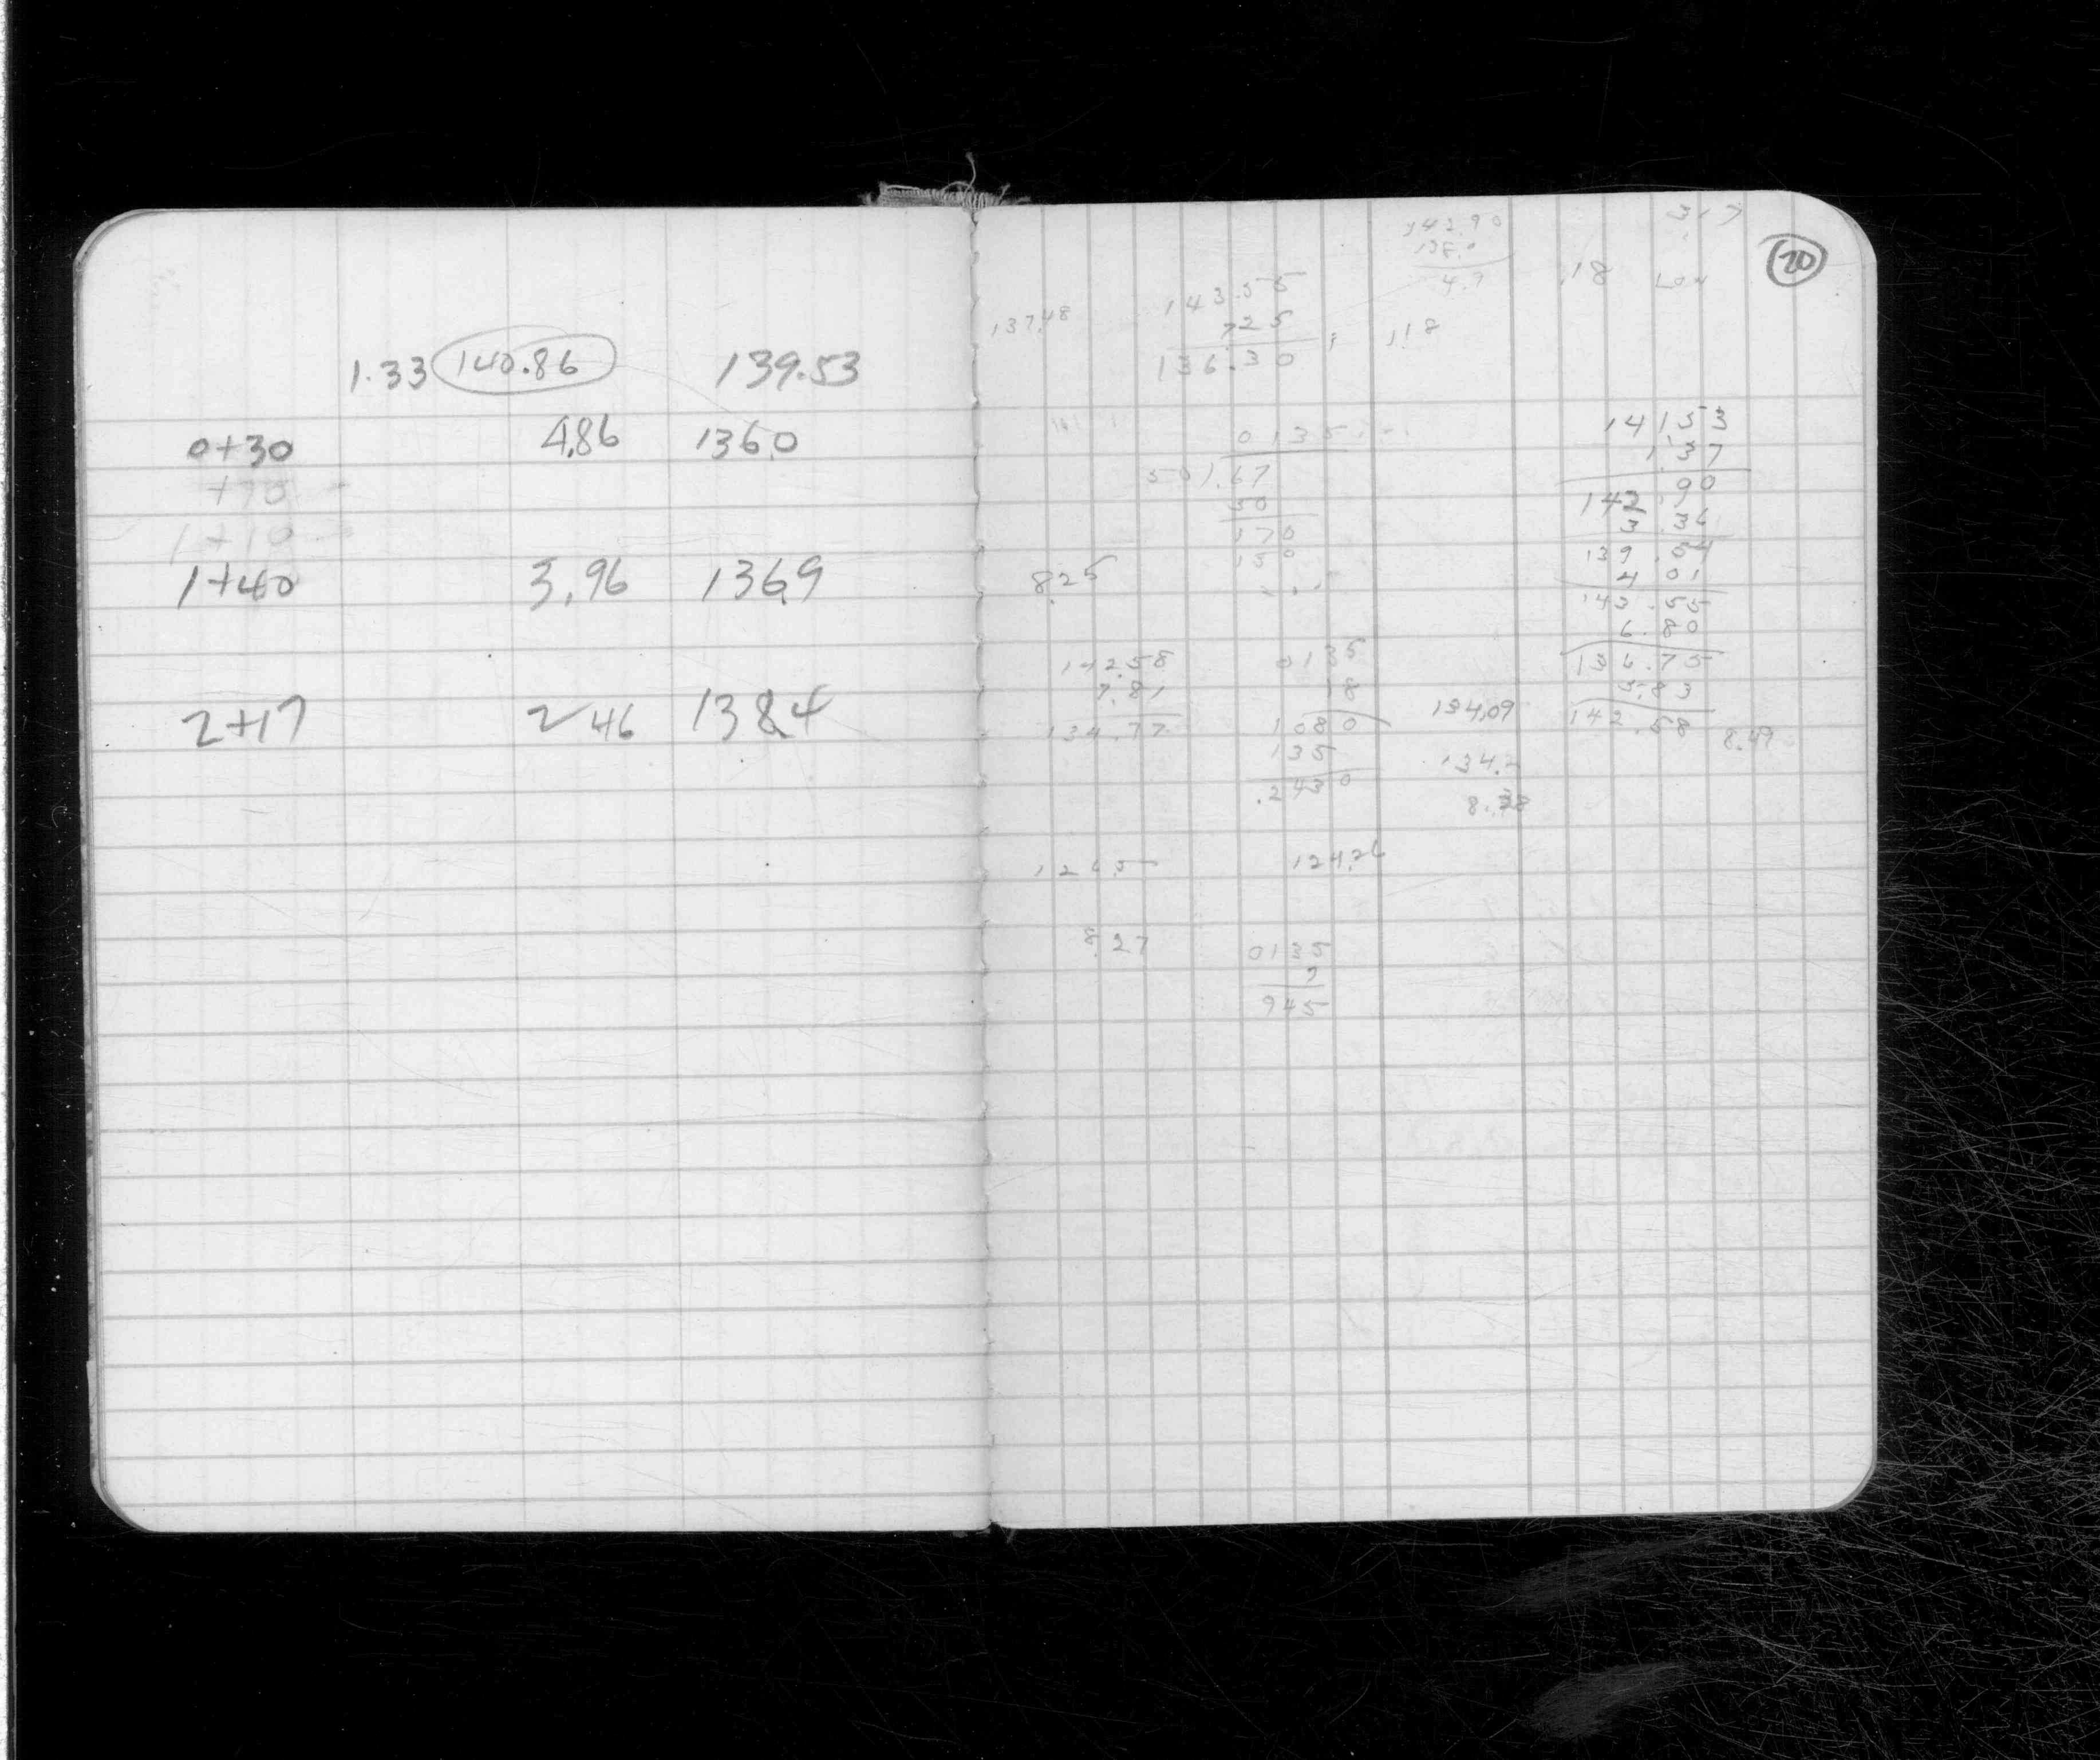 1.33 140.86 139.53
0+30 4.86 136.0
+70 -
1+10 -
1+40 3.96 136.9
2+17 2 46 138.4
20
142.90
138.0
4.9
.18 Low
137.48
143.55
7 25
136.30
118
0135...
50).67
50
170
150
8.25
142.58
7.81
134.77
0135
18
1080
135
.2430
134.09
134.2
141 53
1.37
142.90
3.36
139.54
4 01
143.55
6.80
136.75
5.83
142.58
8.49
126.5
124.26
8.27
0135
7
945